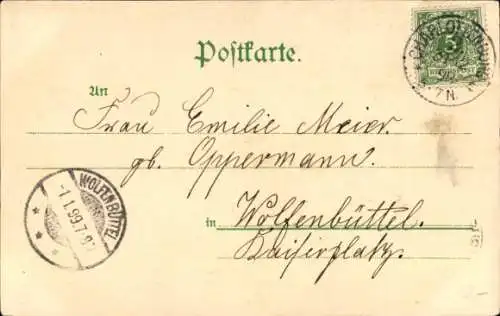 Postkarte.
An
Frau Emilie Meier.
gb. Oppermann.
in Wolfenbüttel.
Kaiserplatz.
WOLFENBÜTTEL
CHARLOTTENBURG
7 N.
3